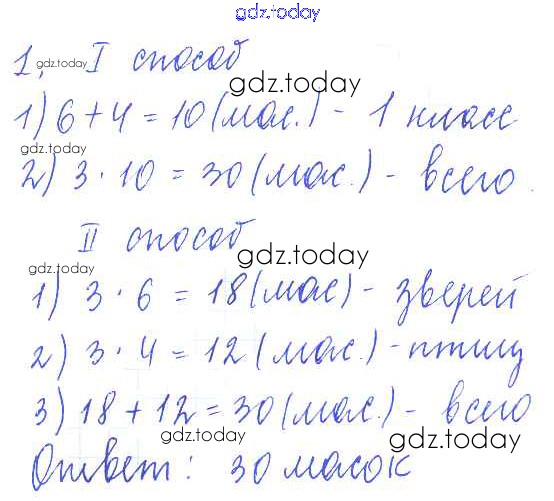 gdz.today
1. gdz.today I способ
gdz.today
1) 6 + 4 = 10 (мас.) - 1 класс
gdz.today
2) 3 · 10 = 30 (мас.) - всего.
II способ
gdz.today
gdz.today
1) 3 · 6 = 18 (мас) - зверей
2) 3 · 4 = 12 (мас.) - птиц
3) 18 + 12 = 30 (мас.) - всего
gdz.today gdz.today
Ответ: 30 масок